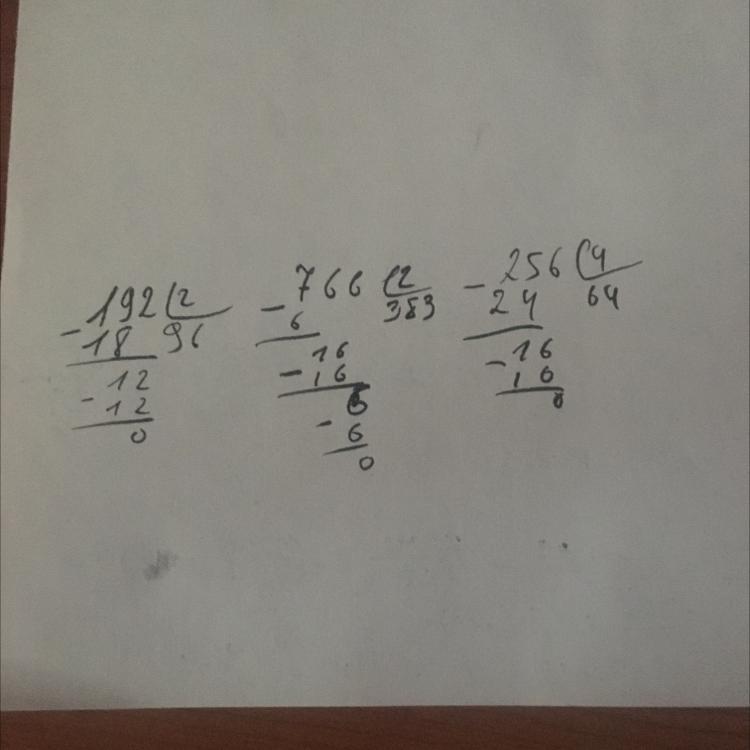 192 2
- 18 96
12
- 12
0
766 2
- 6 383
16
- 16
6
- 6
0
- 256 4
24 64
- 16
16
0